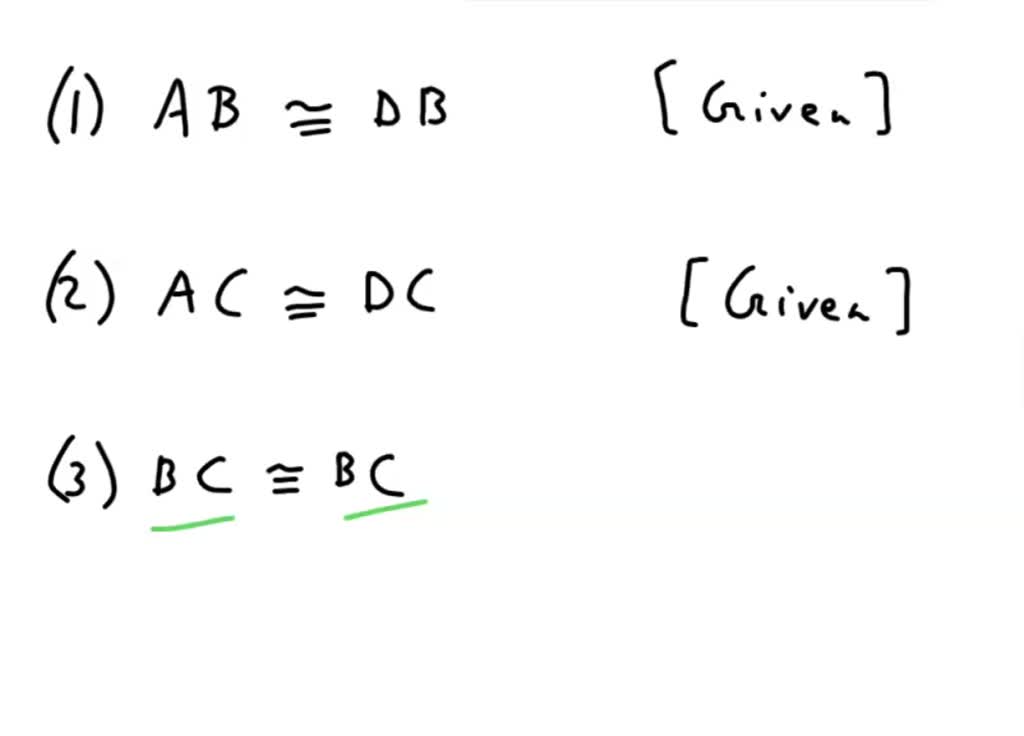 (1) AB ≅ DB [Given]
(2) AC ≅ DC [Given]
(3) BC ≅ BC